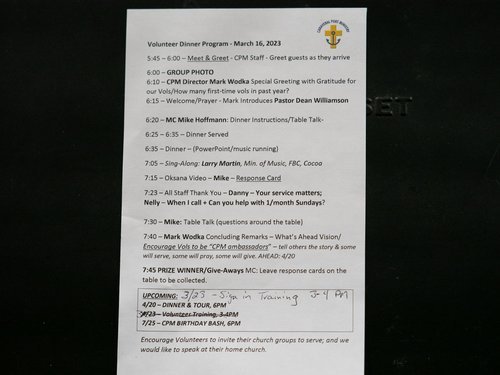 CANAVERAL PORT MINISTRY
Volunteer Dinner Program - March 16, 2023
5:45 – 6:00 – Meet & Greet - CPM Staff - Greet guests as they arrive
6:00 – GROUP PHOTO
6:10 – CPM Director Mark Wodka Special Greeting with Gratitude for
our Vols/How many first-time vols in past year?
6:15 – Welcome/Prayer - Mark Introduces Pastor Dean Williamson
6:20 – MC Mike Hoffmann: Dinner Instructions/Table Talk-
6:25 – 6:35 – Dinner Served
6:35 – Dinner – (PowerPoint/music running)
7:05 – Sing-Along: Larry Martin, Min. of Music, FBC, Cocoa
7:15 – Oksana Video – Mike – Response Card
7:23 – All Staff Thank You – Danny – Your service matters;
Nelly – When I call + Can you help with 1/month Sundays?
7:30 – Mike: Table Talk (questions around the table)
7:40 – Mark Wodka Concluding Remarks – What's Ahead Vision/
Encourage Vols to be "CPM ambassadors" – tell others the story & some
will serve, some will pray, some will give. AHEAD: 4/20
7:45 PRIZE WINNER/Give-Aways MC: Leave response cards on the
table to be collected.
UPCOMING: 3/23 - Sign in Training 3-4 PM
4/20 – DINNER & TOUR, 6PM
/23 – Volunteer Training, 3-4PM
7/25 – CPM BIRTHDAY BASH, 6PM
Encourage Volunteers to invite their church groups to serve; and we
would like to speak at their home church.
SET